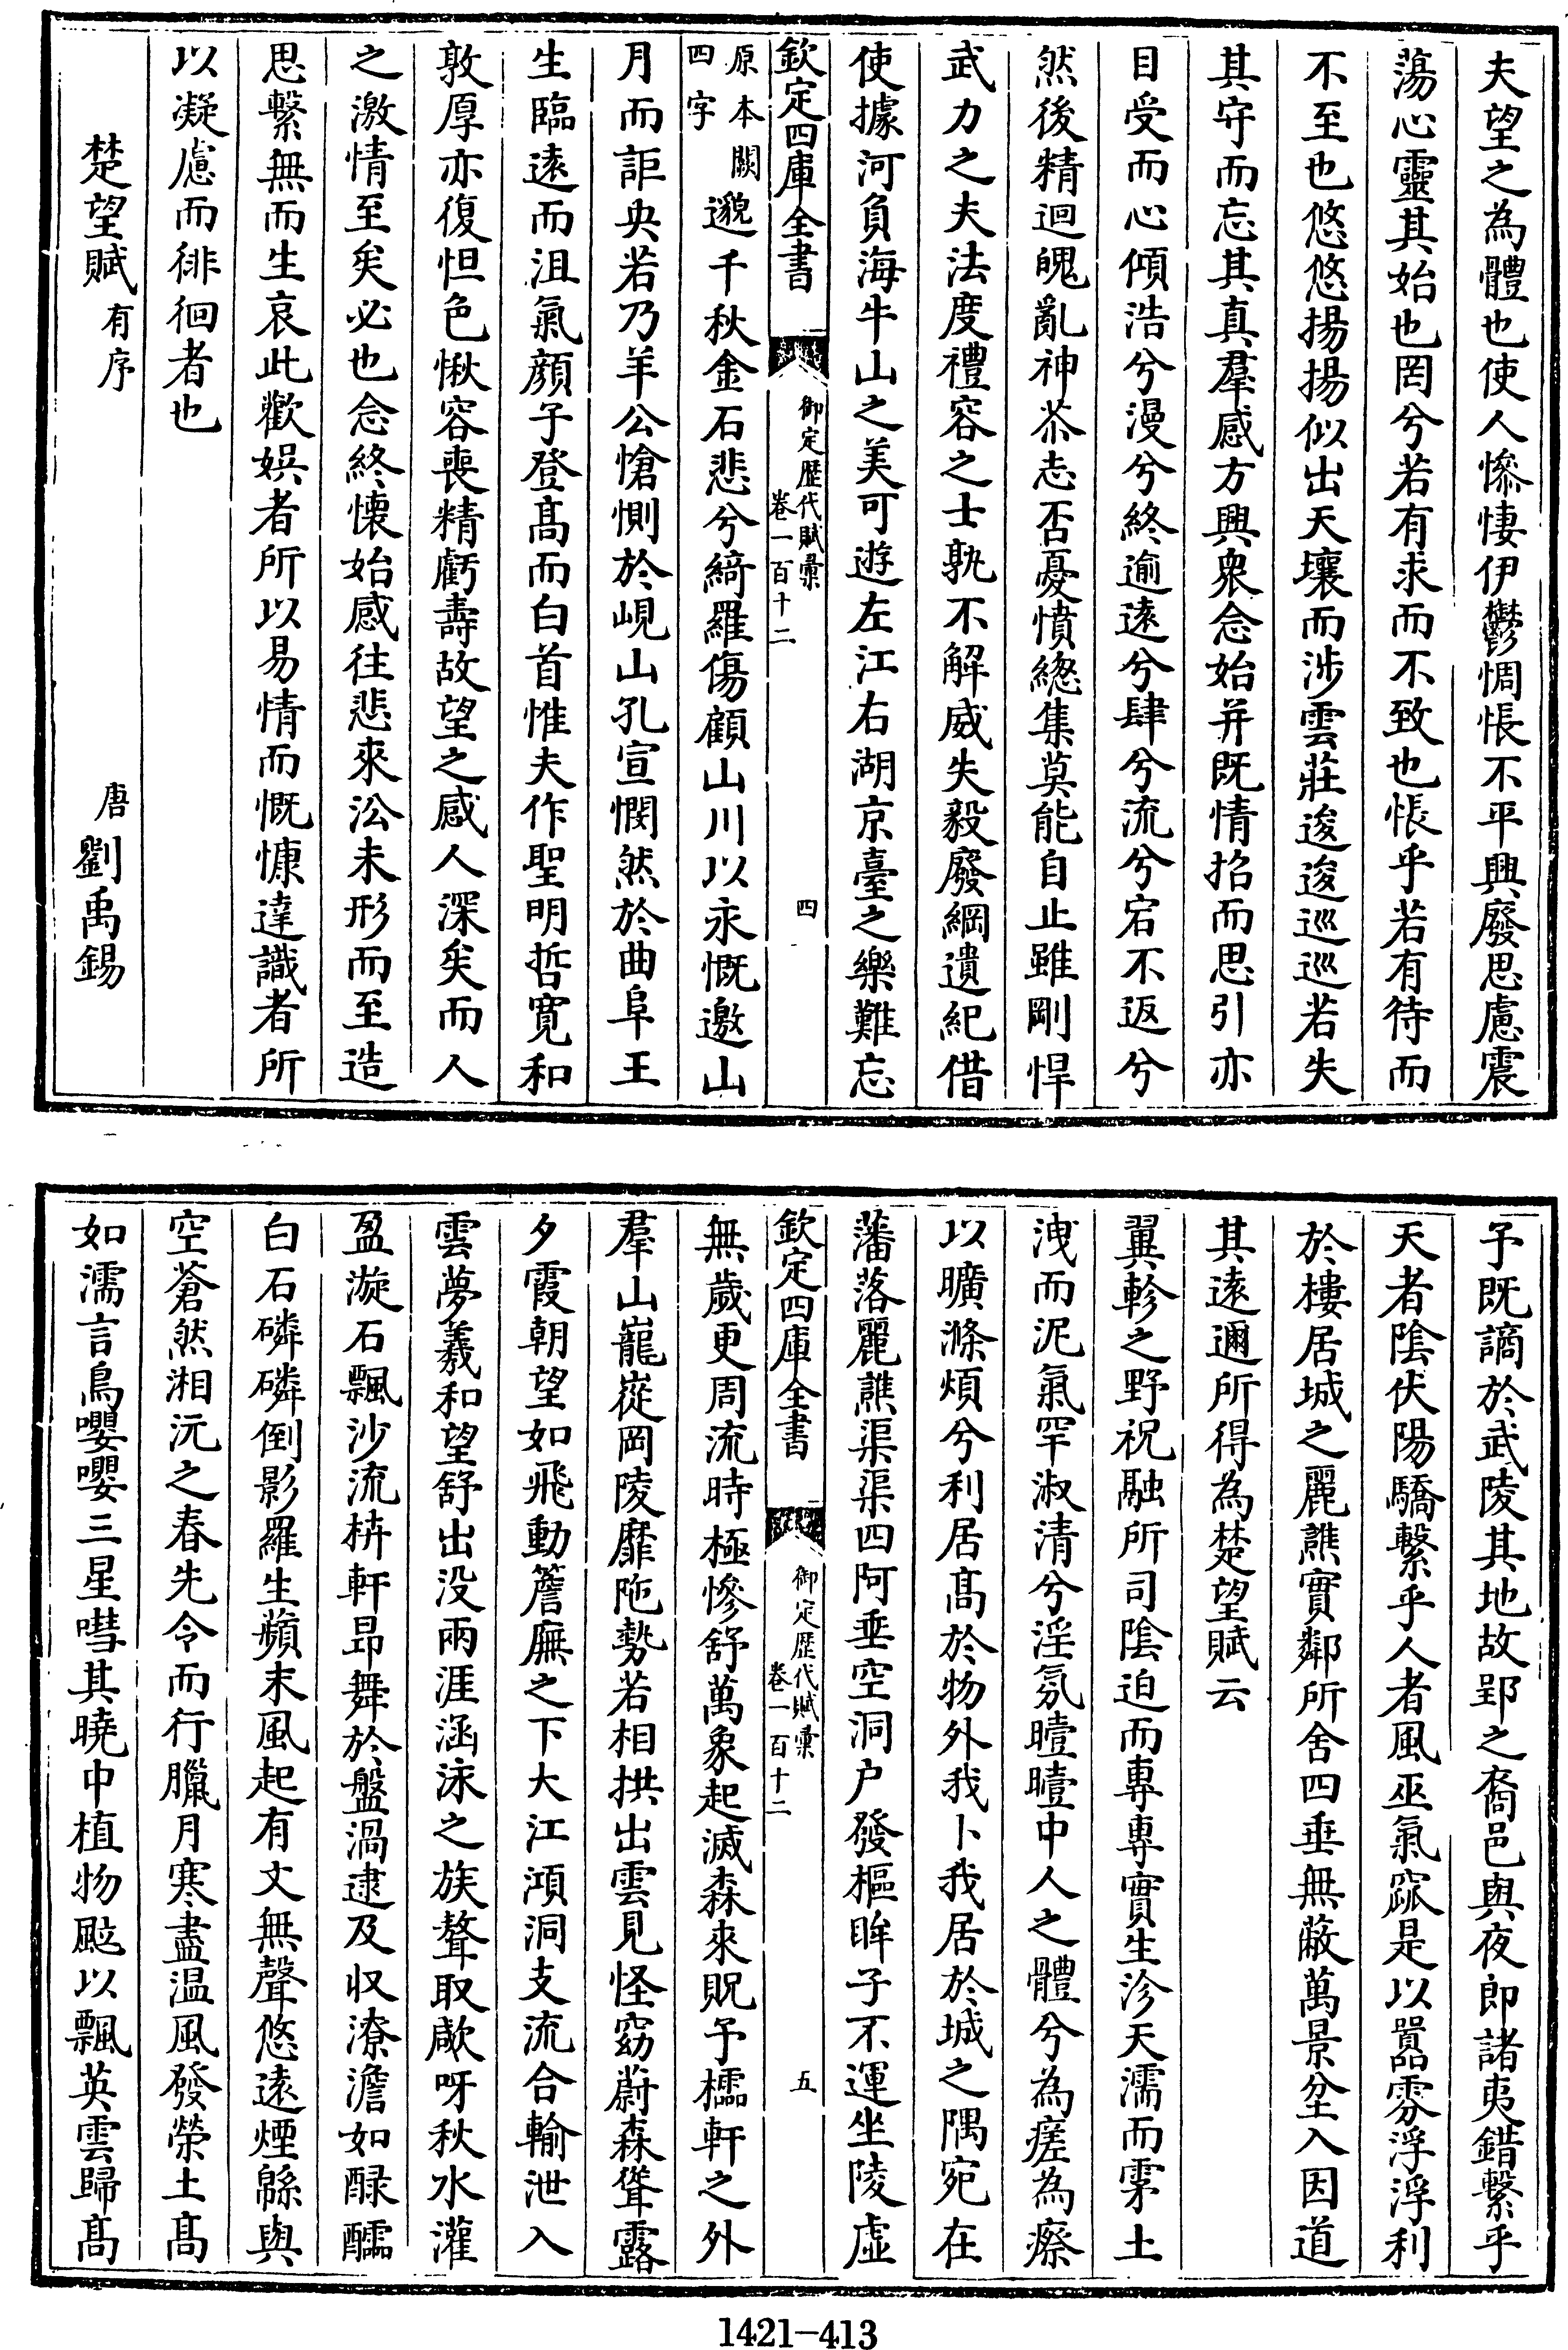 夫望之為體也使人慘悽伊鬱惆悵不平興廢思慮震
蕩心靈其始也罔兮若有求而不致也悵乎若有待而
不至也悠悠揚揚似出天壤而涉雲莊逡逡巡巡若失
其守而忘其真羣感方興衆念始并既情招而思引亦
目受而心傾浩兮漫兮終逾遠兮肆兮流兮宕不返兮
然後精迴魄亂神苶志否憂憤總集莫能自止雖剛悍
武力之夫法度禮容之士孰不解威失毅廢綱遺紀借
使據河負海牛山之美可遊左江右湖京臺之樂難忘
欽定四庫全書
御定歴代賦彙
卷一百十二
四
原本闕
四字
邈千秋金石悲兮綺羅傷顧山川以永慨邀山
月而詎央若乃羊公愴惻於峴山孔宣憫然於曲阜王
生臨遠而沮氣顔子登髙而白首惟夫作聖明哲寛和
敦厚亦復怛色愀容喪精虧壽故望之感人深矣而人
之激情至矣必也念終懷始感往悲來沿未形而至造
思繫無而生哀此歡娯者所以易情而慨慷達識者所
以凝慮而徘徊者也
楚望賦有序
唐劉禹錫
予既謫於武陵其地故郢之裔邑與夜郎諸夷錯繫乎
天者陰伏陽驕繫乎人者風巫氣窳是以嚣雰浮浮利
於樓居城之麗譙實鄰所舍四垂無蔽萬景坌入因道
其遠邇所得為楚望賦云
翼軫之野祝融所司陰迫而專專實生沴天濡而霿土
洩而泥氣罕淑清兮淫氛曀曀中人之體兮為瘥為瘵
以曠滌煩兮利居髙於物外我卜我居於城之隅宛在
藩落麗譙渠渠四阿垂空洞户發樞眸子不運坐陵虛
欽定四庫全書
御定歴代賦彙
卷一百十二
五
無歲更周流時極慘舒萬象起滅森來貺予櫺軒之外
羣山巃嵸岡陵靡陁勢若相拱出雲見怪窈蔚森聳露
夕霞朝望如飛動簷廡之下大江澒洞支流合輸泄入
雲夢羲和望舒出没兩涯涵泳之族螯取歊呀秋水灌
盈漩石飄沙流枿軒昻舞於盤渦逮及収潦澹如醁醽
白石磷磷倒影羅生蘋末風起有文無聲悠遠煙緜與
空蒼然湘沅之春先令而行臘月寒盡温風發榮土髙
如濡言鳥嚶嚶三星嘒其曉中植物颭以飄英雲歸髙
1421-413